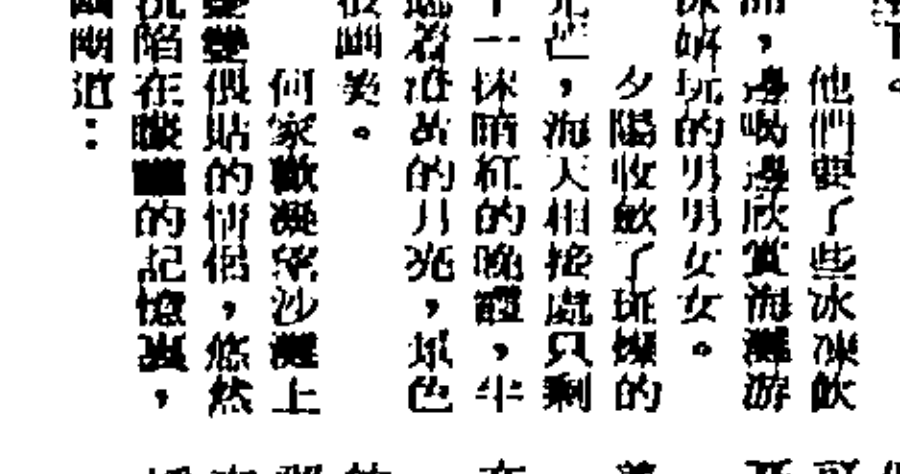 下。
他們要了些冰凍飲
，邊喝邊欣賞海灘游
泳 玩的男男女女。
夕陽收斂了斑斕的
光芒，海天相接處只剩
下一抹暗紅的晚霞，半
着澄黃的月光，景色
很幽美。
何家歡凝望沙灘上
雙雙偎貼的情侶，悠然
沉陷在朦朧的記憶裏，
幽幽道：